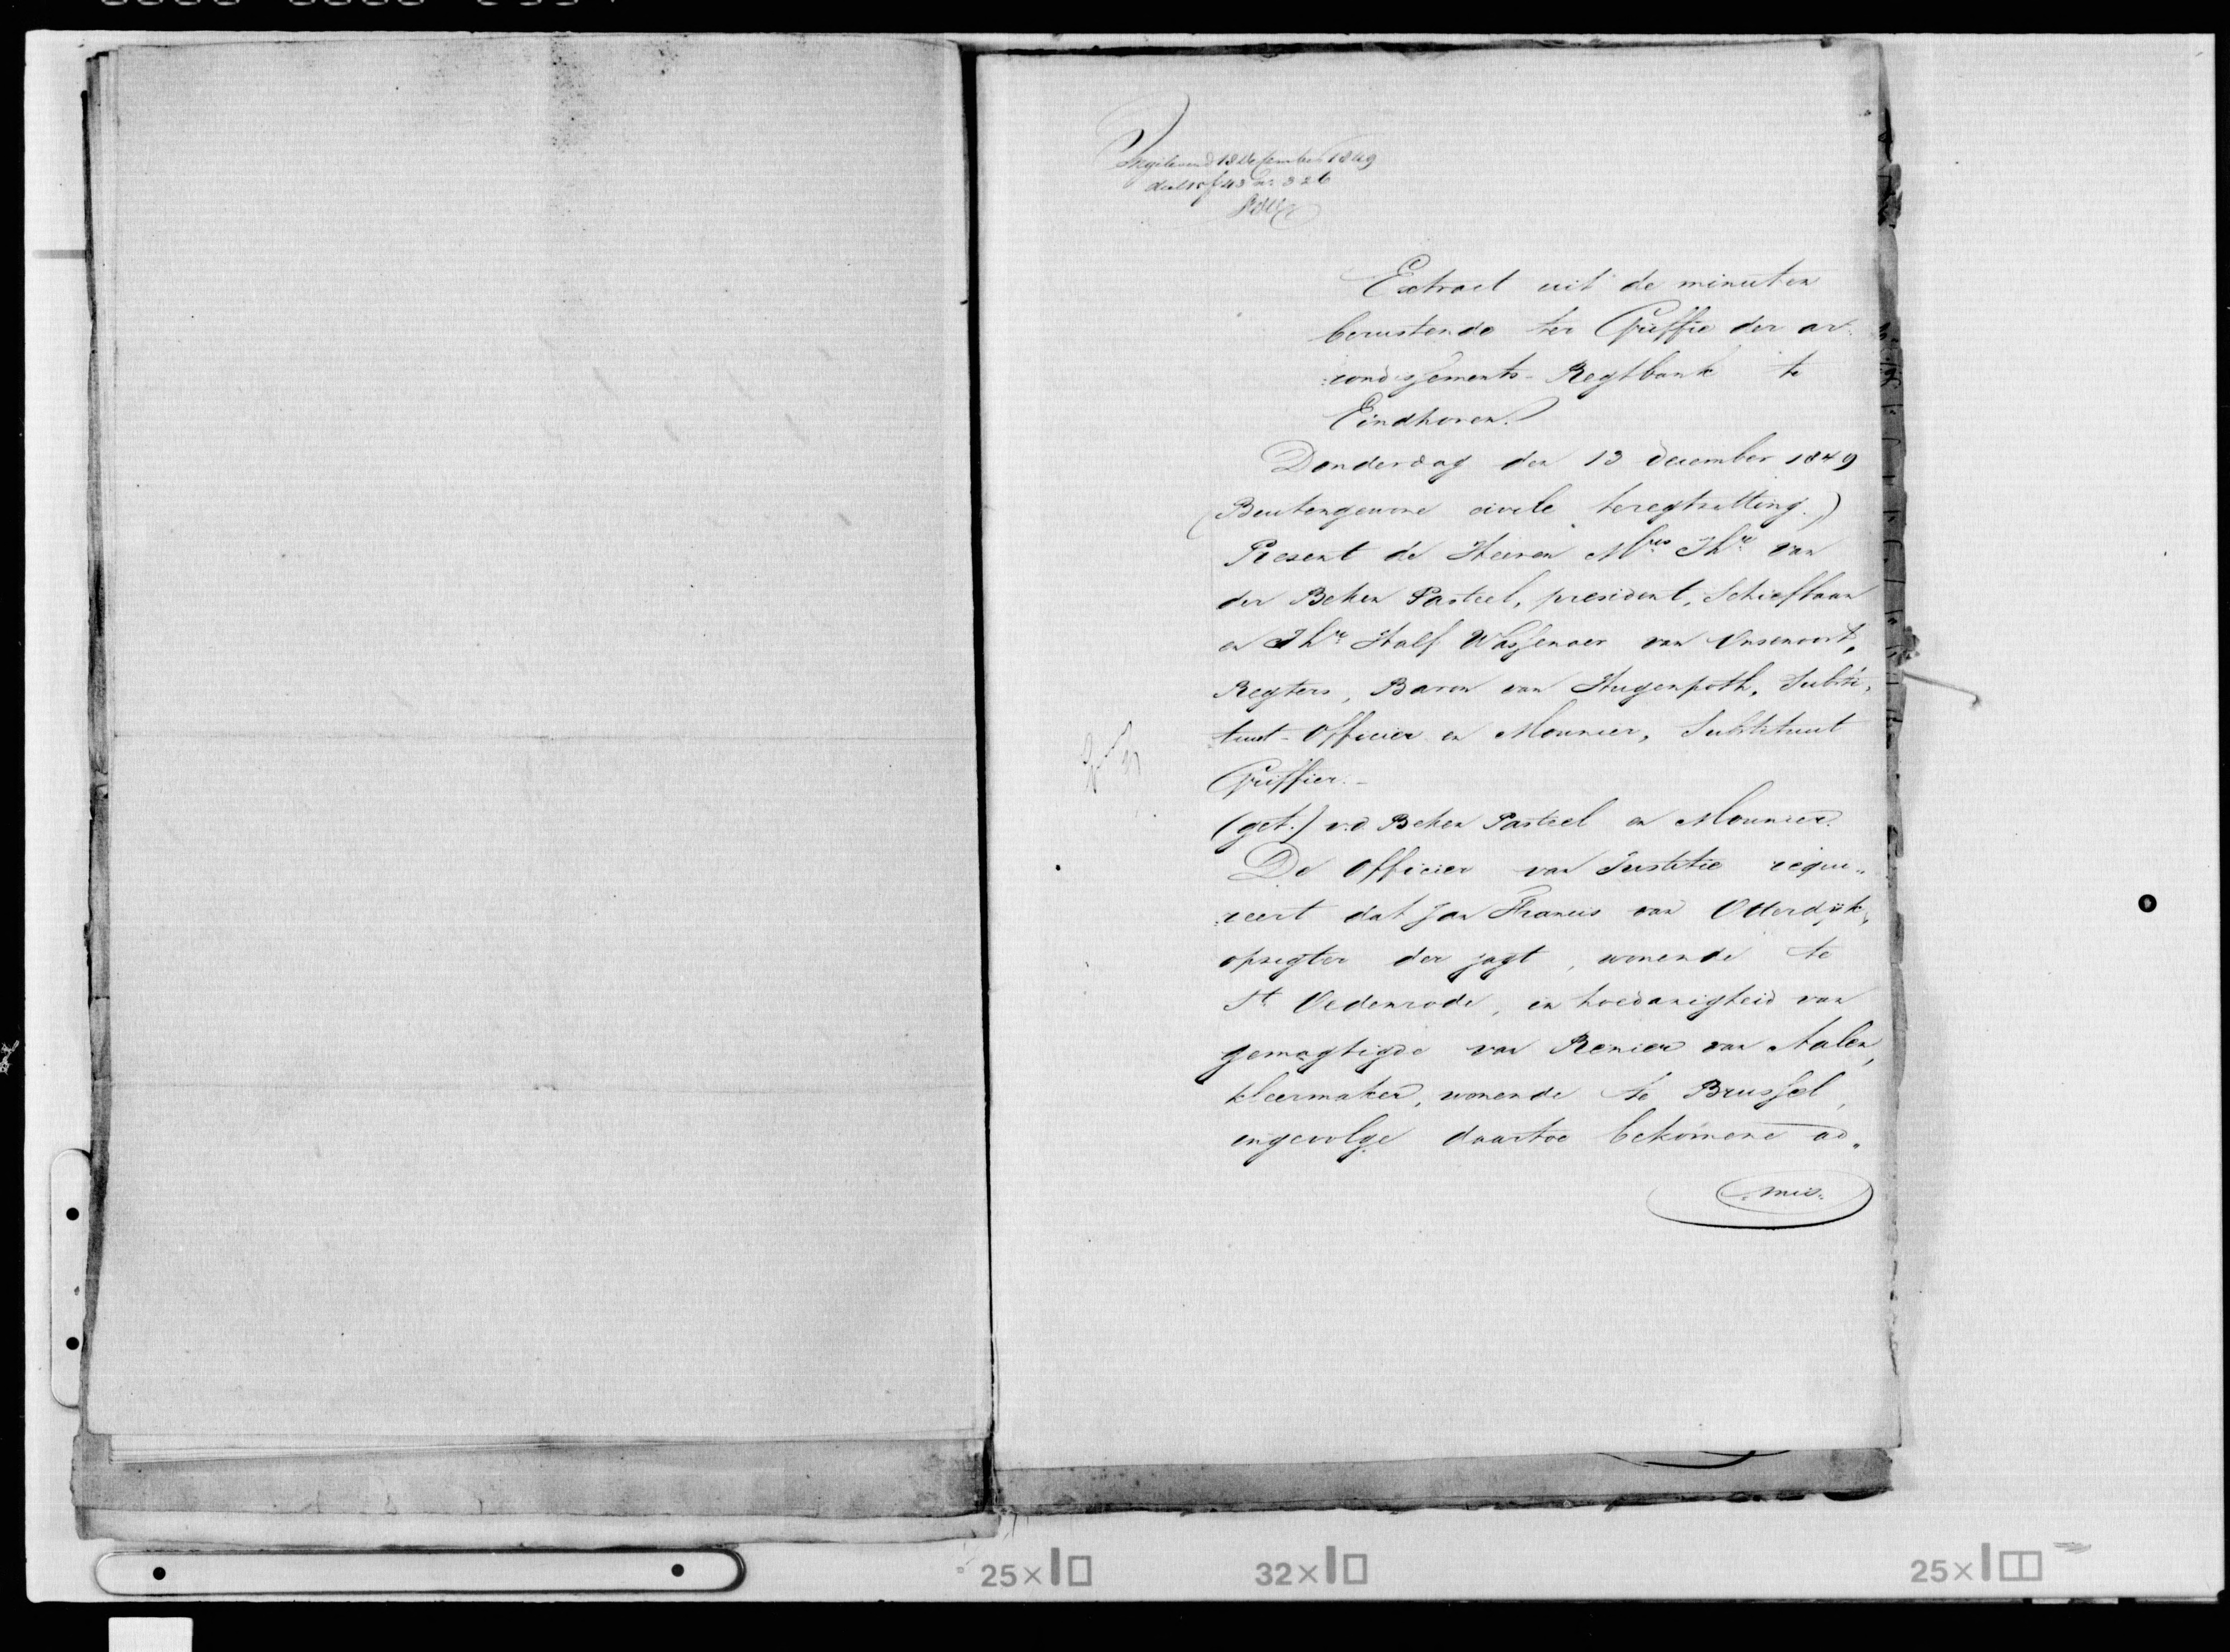 Ingeleverd 18 December 1849
deel 10 f 43 n. 326
Extract uit de minuten
berustende ter Griffie der ar-
:rondissements-Regtbank te
Eindhoven.
Donderdag den 13 december 1849
(Buitengewone civile teregtzitting.)
Present de Heeren Mres Jhr van
der Beken Pasteel, president, Schieffbaan
en Jhr Half Wassenaer van Onsenoort,
Regters, Baron van Hugenpoth, Substi-
tuut-Officier en Mounier, Substituut
Griffier.-
(get.) v.d. Beken Pasteel en Mounier.
De Officier van Justitie requi-
:reert dat Jan Francis van Otterdijk,
opzigter der jagt, wonende te
St. Oedenrode, in hoedanigheid van
gemagtigde van Renier van Aalen,
kleermaker, wonende te Brussel,
ingevolge daartoe bekomene ad-
:mis:
25×
32×
25×